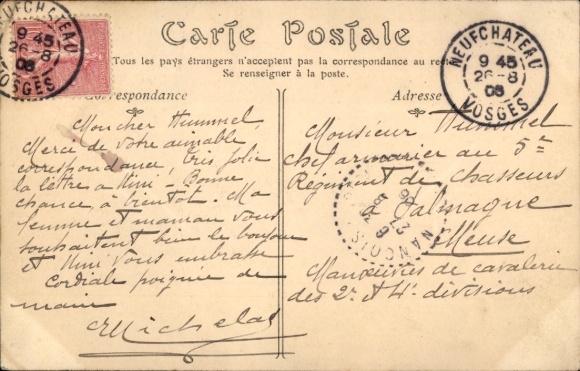 NEUFCHATEAU
9 45
26-8
05
VOSGES
Carte Postale
Tous les pays étrangers n'acceptent pas la correspondance au recto
Se renseigner à la poste.
NEUFCHATEAU
9 45
26-8
05
VOSGES
Correspondance
Mon cher Hummel,
Merci de votre aimable
correspondance, très jolie
la lettre a Mimi - Bonne
chance, à bientôt. Ma
femme et maman vous
souhaitent bien le bonjour
et Mimi vous embrasse
Cordiale poignée de
main
Michelas
Adresse
Monsieur Hummel
chef armurier au 5e
Régiment de chasseurs
Salmagne
Meuse
Manœuvres de cavalerie
des 2e et 4e divisions